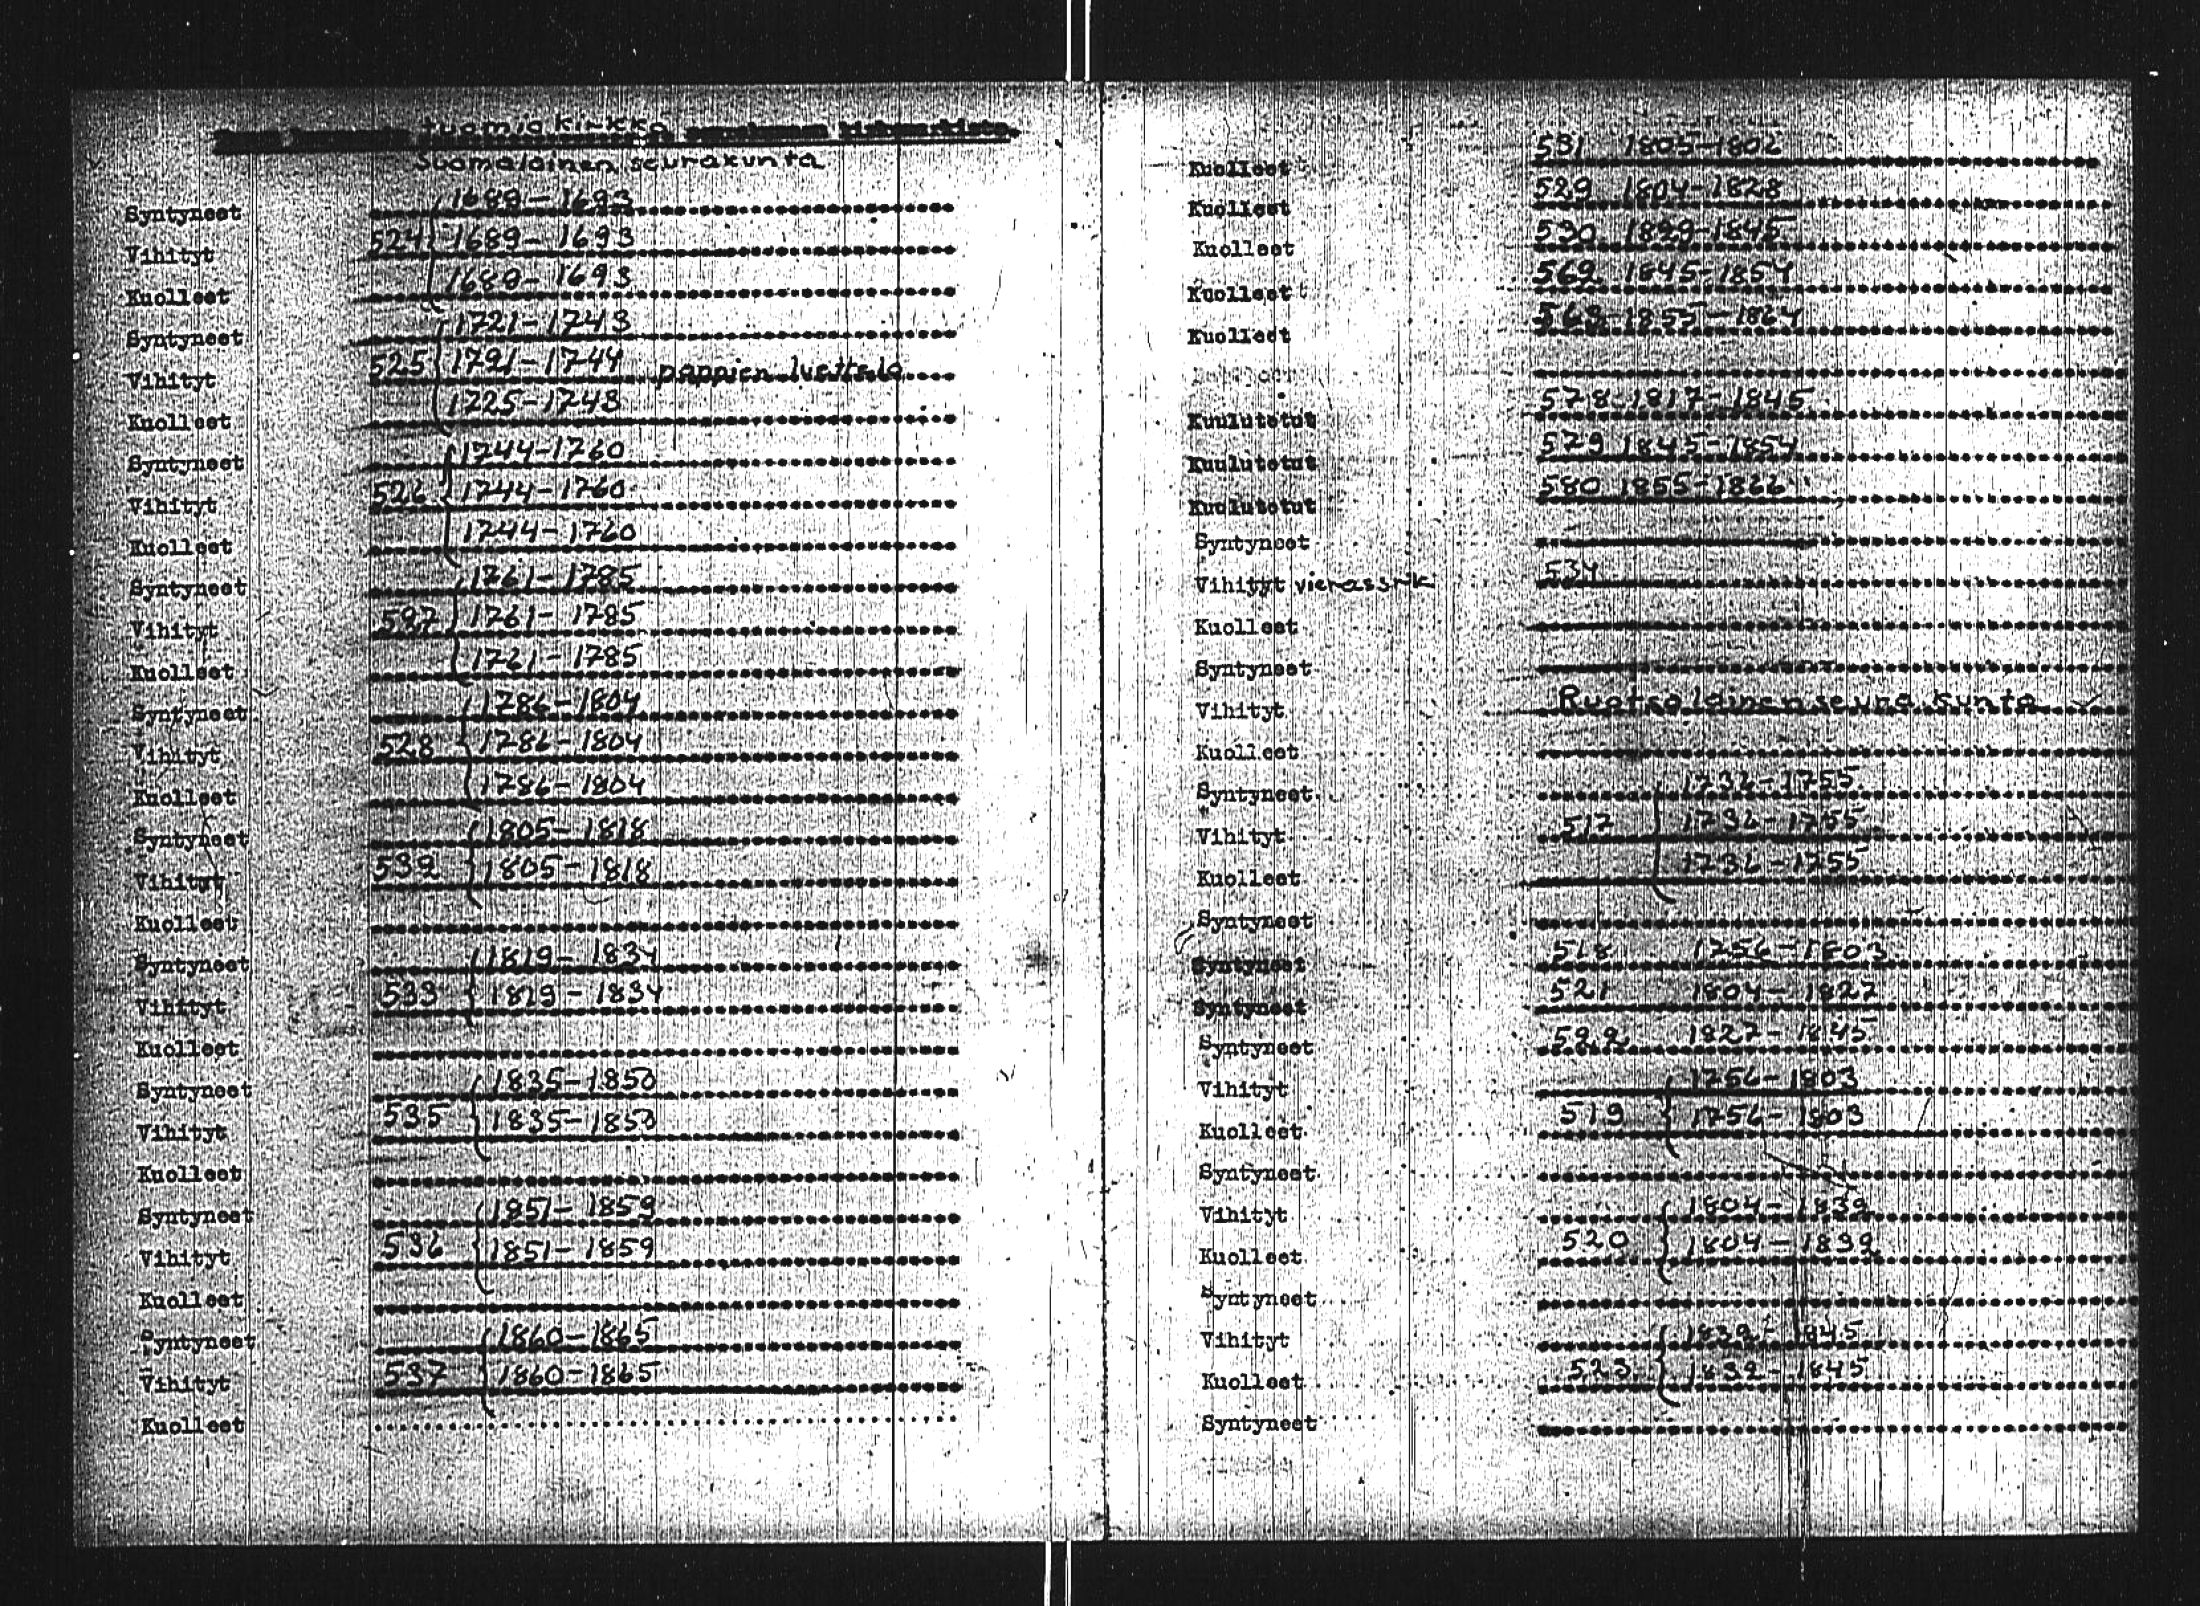 tuomiokirkko seurakunnan kirkonarkisto.
Suomalainen seurakunta
Syntyneet 1689-1693
Vihityt 524 1689-1693
Kuolleet 1689-1693
Syntyneet 1721-1743
Vihityt 525 1721-1744 pappien luettelo
Kuolleet 1725-1743
Syntyneet 1744-1760
Vihityt 526 1744-1760
Kuolleet 1744-1760
Syntyneet 1761-1785
Vihityt 527 1761-1785
Kuolleet 1761-1785
Syntyneet 1786-1804
Vihityt 528 1786-1804
Kuolleet 1786-1804
Syntyneet 1805-1818
Vihityt 532 1805-1818
Kuolleet
Syntyneet 1819-1834
Vihityt 533 1819-1834
Kuolleet
Syntyneet 1835-1850
Vihityt 535 1835-1850
Kuolleet
Syntyneet 1851-1859
Vihityt 536 1851-1859
Kuolleet
Syntyneet 1860-1865
Vihityt 537 1860-1865
Kuolleet
Kuolleet 531
Kuolleet 529 1804-1828
Kuolleet 530 1829-1845
Kuolleet 562 1845-1854
Kuolleet 563 1855-1864
Kuulutetut 578 1817-1845
Kuulutetut 579 1845-1854
Kuulutetut 580 1855-1866
Syntyneet
Vihityt vieras srk 534
Kuolleet
Syntyneet
Vihityt Ruotsalainen seurakunta
Kuolleet
Syntyneet 1736-1755
Vihityt 517 1736-1755
Kuolleet 1736-1755
Syntyneet
Syntyneet 518 1756-1803
Syntyneet 521 1804-1827
Syntyneet 522 1827-1845
Vihityt 1756-1803
Kuolleet 519 1756-1803
Syntyneet
Vihityt 1804-1832
Kuolleet 520 1804-1832
Syntyneet
Vihityt 1832-1845
Kuolleet 523 1832-1845
Syntyneet